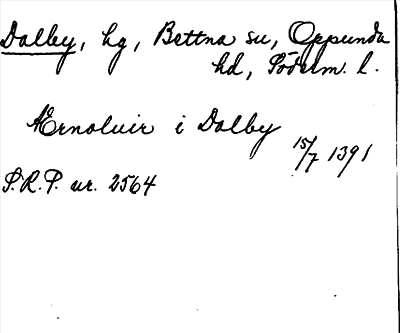 Dalby, hg, Bettna sn, Oppunda
hd, Söderm. l.
Ærnoluir i Dalby
15/7 1391
S.R.P. nr. 2564